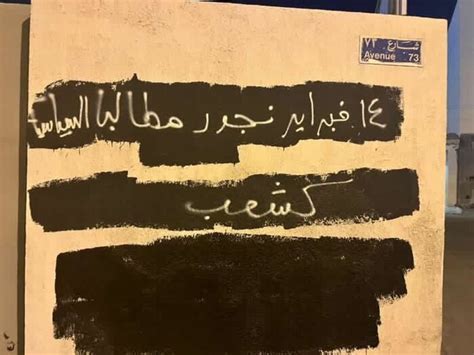 شارع ٧٣
Avenue 73
١٤ فبراير نجدد مطالبنا السياسية
كشعب